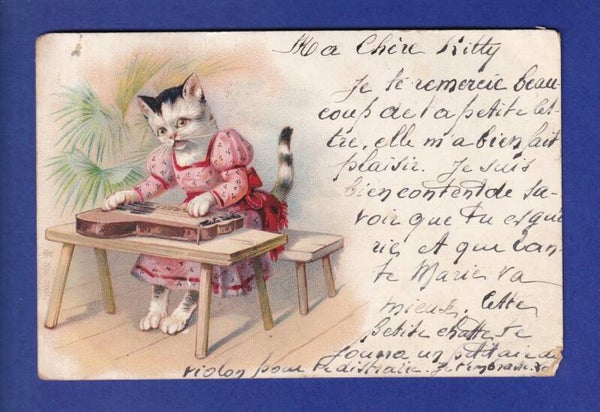 Ma Chère Kitty
Je te remercie beau-
coup de ta petite let-
tre, elle m'a bien fait
plaisir. Je suis
bien content de sa-
voir que tu es gué-
rie et que tan-
te Marie va
mieux, Cette
petite chatte te
jouera un petit air de
violon pour te distraire. Je t'embrasse